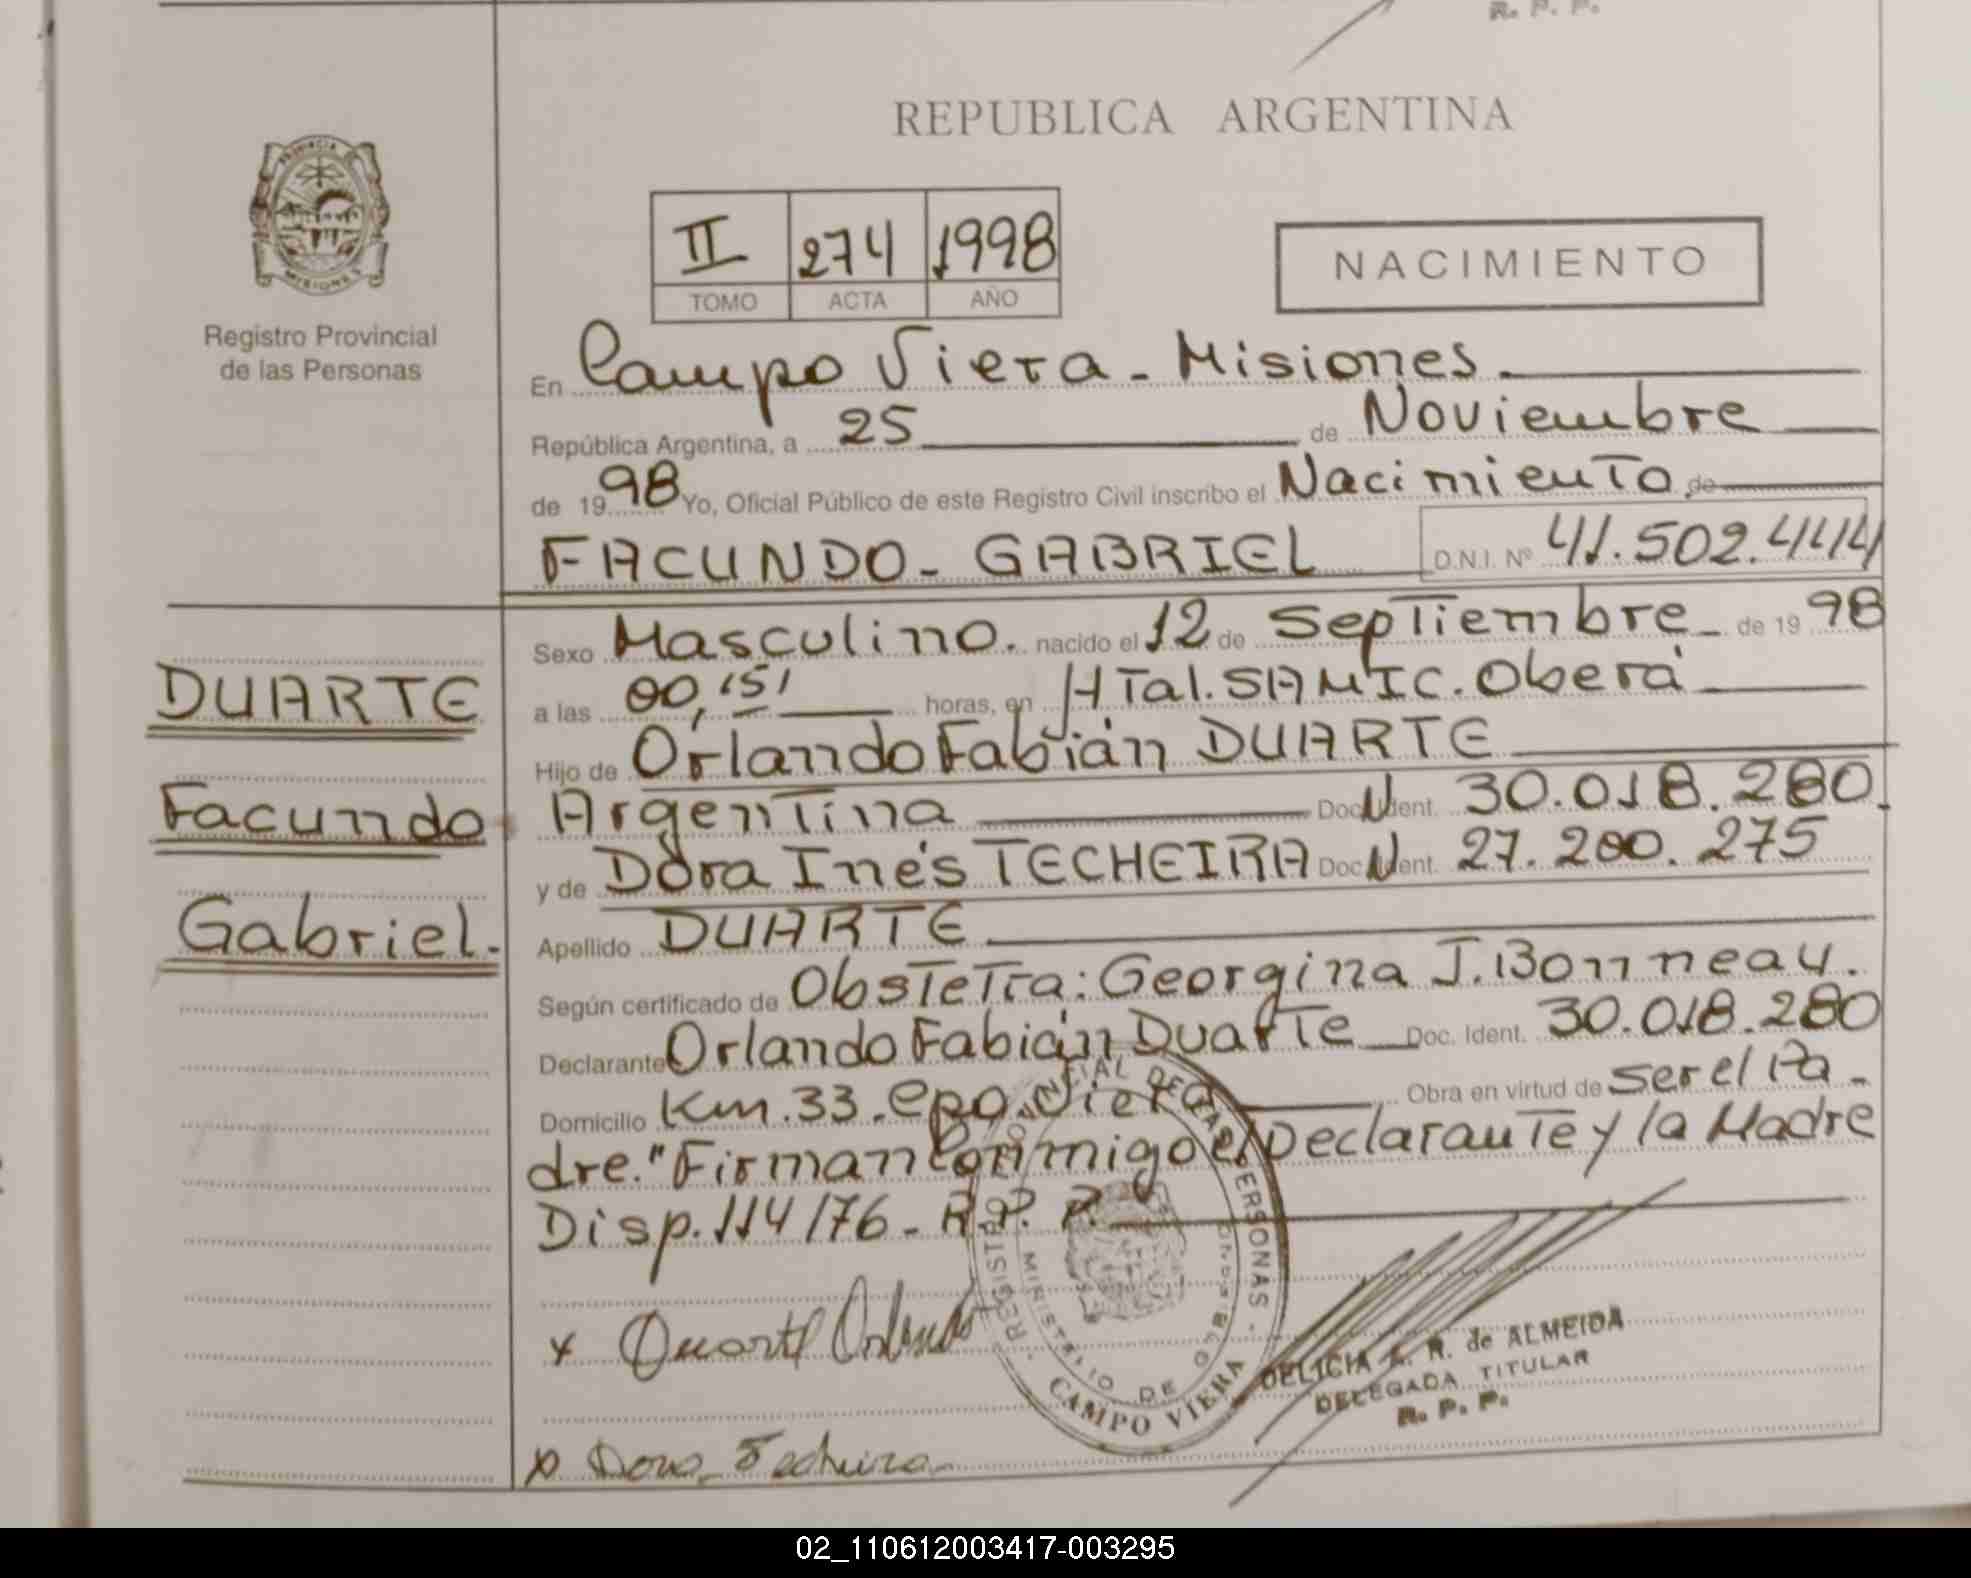 R. P. P.
REPUBLICA ARGENTINA
PROVINCIA DE
MISIONES
Registro Provincial
de las Personas
II 274 1998
TOMO ACTA AÑO
NACIMIENTO
En Campo Viera - Misiones
República Argentina, a 25 de Noviembre
de 1998 Yo, Oficial Público de este Registro Civil inscribo el Nacimiento de
FACUNDO - GABRIEL D.N.I. Nº 41.502.444
Sexo Masculino. nacido el 12 de Septiembre - de 1998
a las 00,15' horas, en HTal. SAMIC. Oberá
Hijo de Orlando Fabián DUARTE
Argentina Doc. Ident. N 30.018.280.
y de Dora Inés TECHEIRA Doc. Ident. N 27.200.275
Apellido DUARTE
Según certificado de Obstetra: Georgina J. Bonneau.
Declarante Orlando Fabián Duarte Doc. Ident. 30.018.280
Domicilio Km. 33. Cpo. Viera Obra en virtud de ser el Pa-
dre." Firman Conmigo el Declarante y la Madre
Disp. 114/76 - R.P.P.
DUARTE
Facundo
Gabriel.
x Duarte Orlando
x Dora Techeira
REGISTRO PROVINCIAL DE LAS PERSONAS
MINISTERIO DE GOBIERNO
CAMPO VIERA
DELICIA R. de ALMEIDA
DELEGADA TITULAR
R. P. P.
02_110612003417-003295